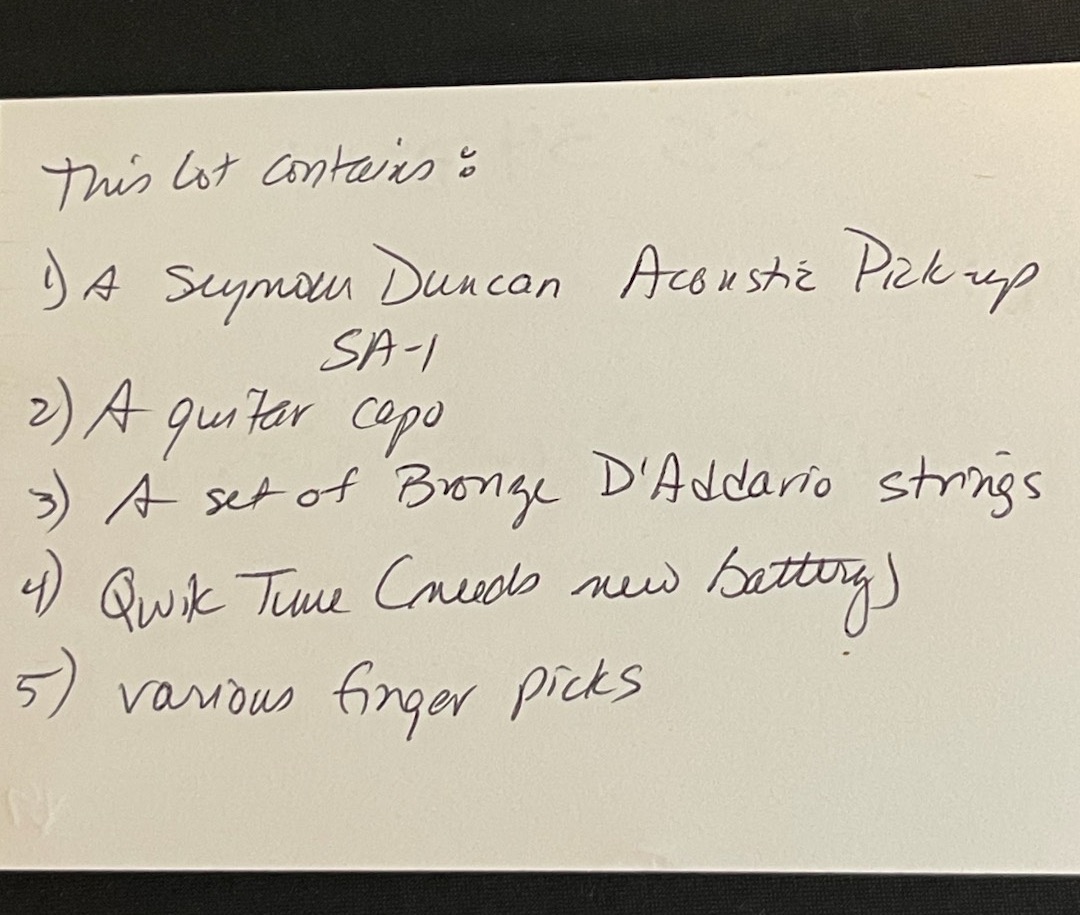 This lot contains:
1) A Seymour Duncan Acoustic Pick-up
SA-1
2) A guitar capo
3) A set of Bronze D'Addario strings
4) Qwik Tune (needs new battery)
5) various finger picks